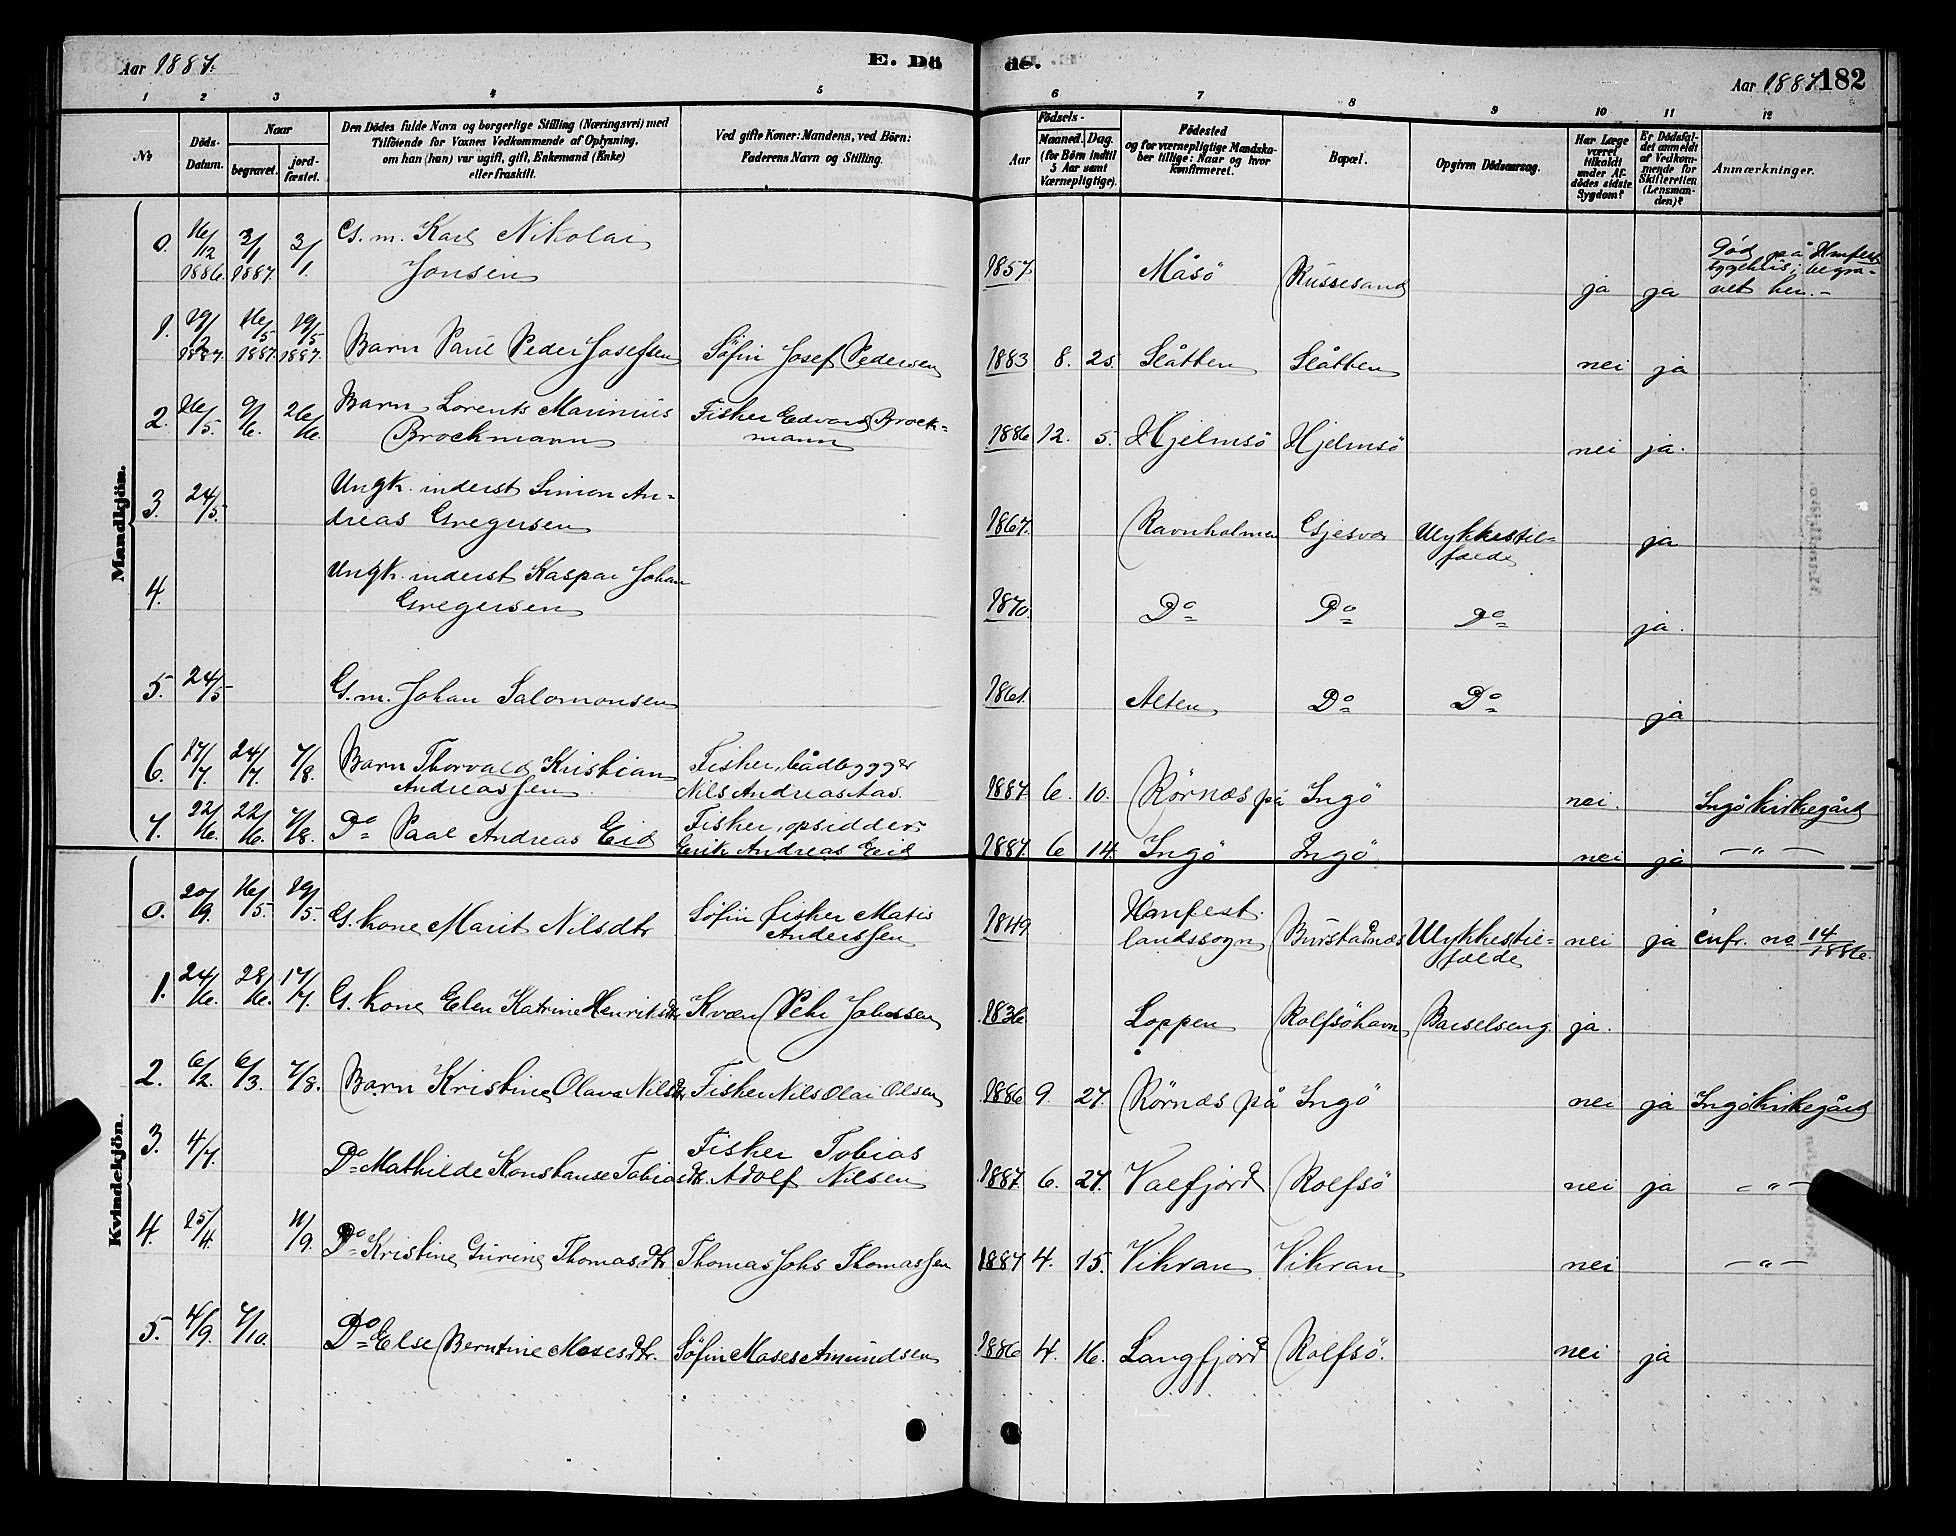 Aar 1887.
E. Dö
de.
Aar 1887.
182
1 2 3 4 5 6 7 8 9 10 11 12
No
Döds-Datum.
Naar
begravet.
jord-fæstet.
Den Dödes fulde Navn og borgerlige Stilling (Næringsvei) med
Tilföiende for Voxnes Vedkommende af Oplysning,
om han (hun) var ugift, gift, Enkemand (Enke)
eller fraskilt.
Ved gifte Koner: Mandens, ved Börn:
Faderens Navn og Stilling.
Födsels-
Aar
Maaned. Dag.
(for Börn indtil
5 Aar samt
Værnepligtige).
Födested
og for værnepligtige Mandska-
ber tillige: Naar og hvor
konfirmeret.
Bopæl.
Opgiven Dödsaarsag.
Har Læge
været
tilkaldt
under Af-
dödes sidste
Sygdom?
Er Dödsfal-
det anmeldt
af Vedkom-
mende for
Skifteretten
(Lensman-
den)?
Anmærkninger.
Mandkjön.
0. 16/12 1886. 3/1 1887. 3/1. G. m. Karl Nikolai
Jonsen 1857. Måsö Russesund ja ja Död på Hmfest
sygehus; begra-
vet her.-
1. 19/2 1887. 16/5 1887. 19/5 1887. Barn Paul Peder Josefsen Söfin Josef Pedersen 1883 8. 25. Slåtten Slåtten nei ja
2. 16/5. 9/6. 26/6. Barn Lorents Marinius
Brockmann Fisker Edvard Brock-
mann 1886 12. 5. Hjelmsö Hjelmsö nei ja.
3. 24/5. Ungk. inderst Simon An-
dreas Gregersen 1867. Ravnholmen Gjesvær Ulykkestil-
fælde ja
4. Ungk. inderst Kaspar Johan
Gregersen 1870. Do Do Do ja.
5. 24/5 G. m. Johan Salomonsen 1861. Alten Do Do ja
6. 17/7. 24/7. 7/8. Barn Thorvald Kristian
Andreassen Fisker, bådbygger
Nils Andreas Aas. 1887. 6. 10. Rörnæs på Ingö nei. Ingö kirkegård
7. 22/6. 22/6. 7/8. Do Paal Andreas Eid Fisker, opsidder
Erik Andreas Eid 1887. 6 14. Ingö Ingö nei ja — " —
Kvindekjön.
0. 20/9. 16/5. 19/5. G. kone Marit Nilsdtr Söfin fisker Matis
Anderssen 1849 Hamfest.
landssogn Burstadnæs Ulykkestil-
fælde nei ja cnfr. no 14/1886.
1. 24/6. 28/6. 17/7. G. kone Elen Katrine Henriksdtr Kvæn Pehr Johnsen 1836 Loppen Rolfsöhavn Barselseng. ja.
2. 6/2. 6/3. 7/8. Barn Kristine Olava Nilsdtr Fisker Nils Olai Olsen 1886 9. 27. Rörnæs på Ingö nei ja Ingö kirkegård
3. 4/7. Do Mathilde Konstanse Tobiasdtr. Fisker Tobias
Adolf Nilsen 1887. 6. 27. Valfjord Rolfsö nei ja — " —
4. 25/4. 11/9. Do Kristine Gurine Thomasdtr. Thomas Johs Thomassen 1887 4. 15. Vikran Vikran nei — " —
5. 4/9. 7/10. Do Else Berntine Mosesdtr. Söfin Moses Amundsen 1886 4. 16. Langfjord Rolfsö. nei ja